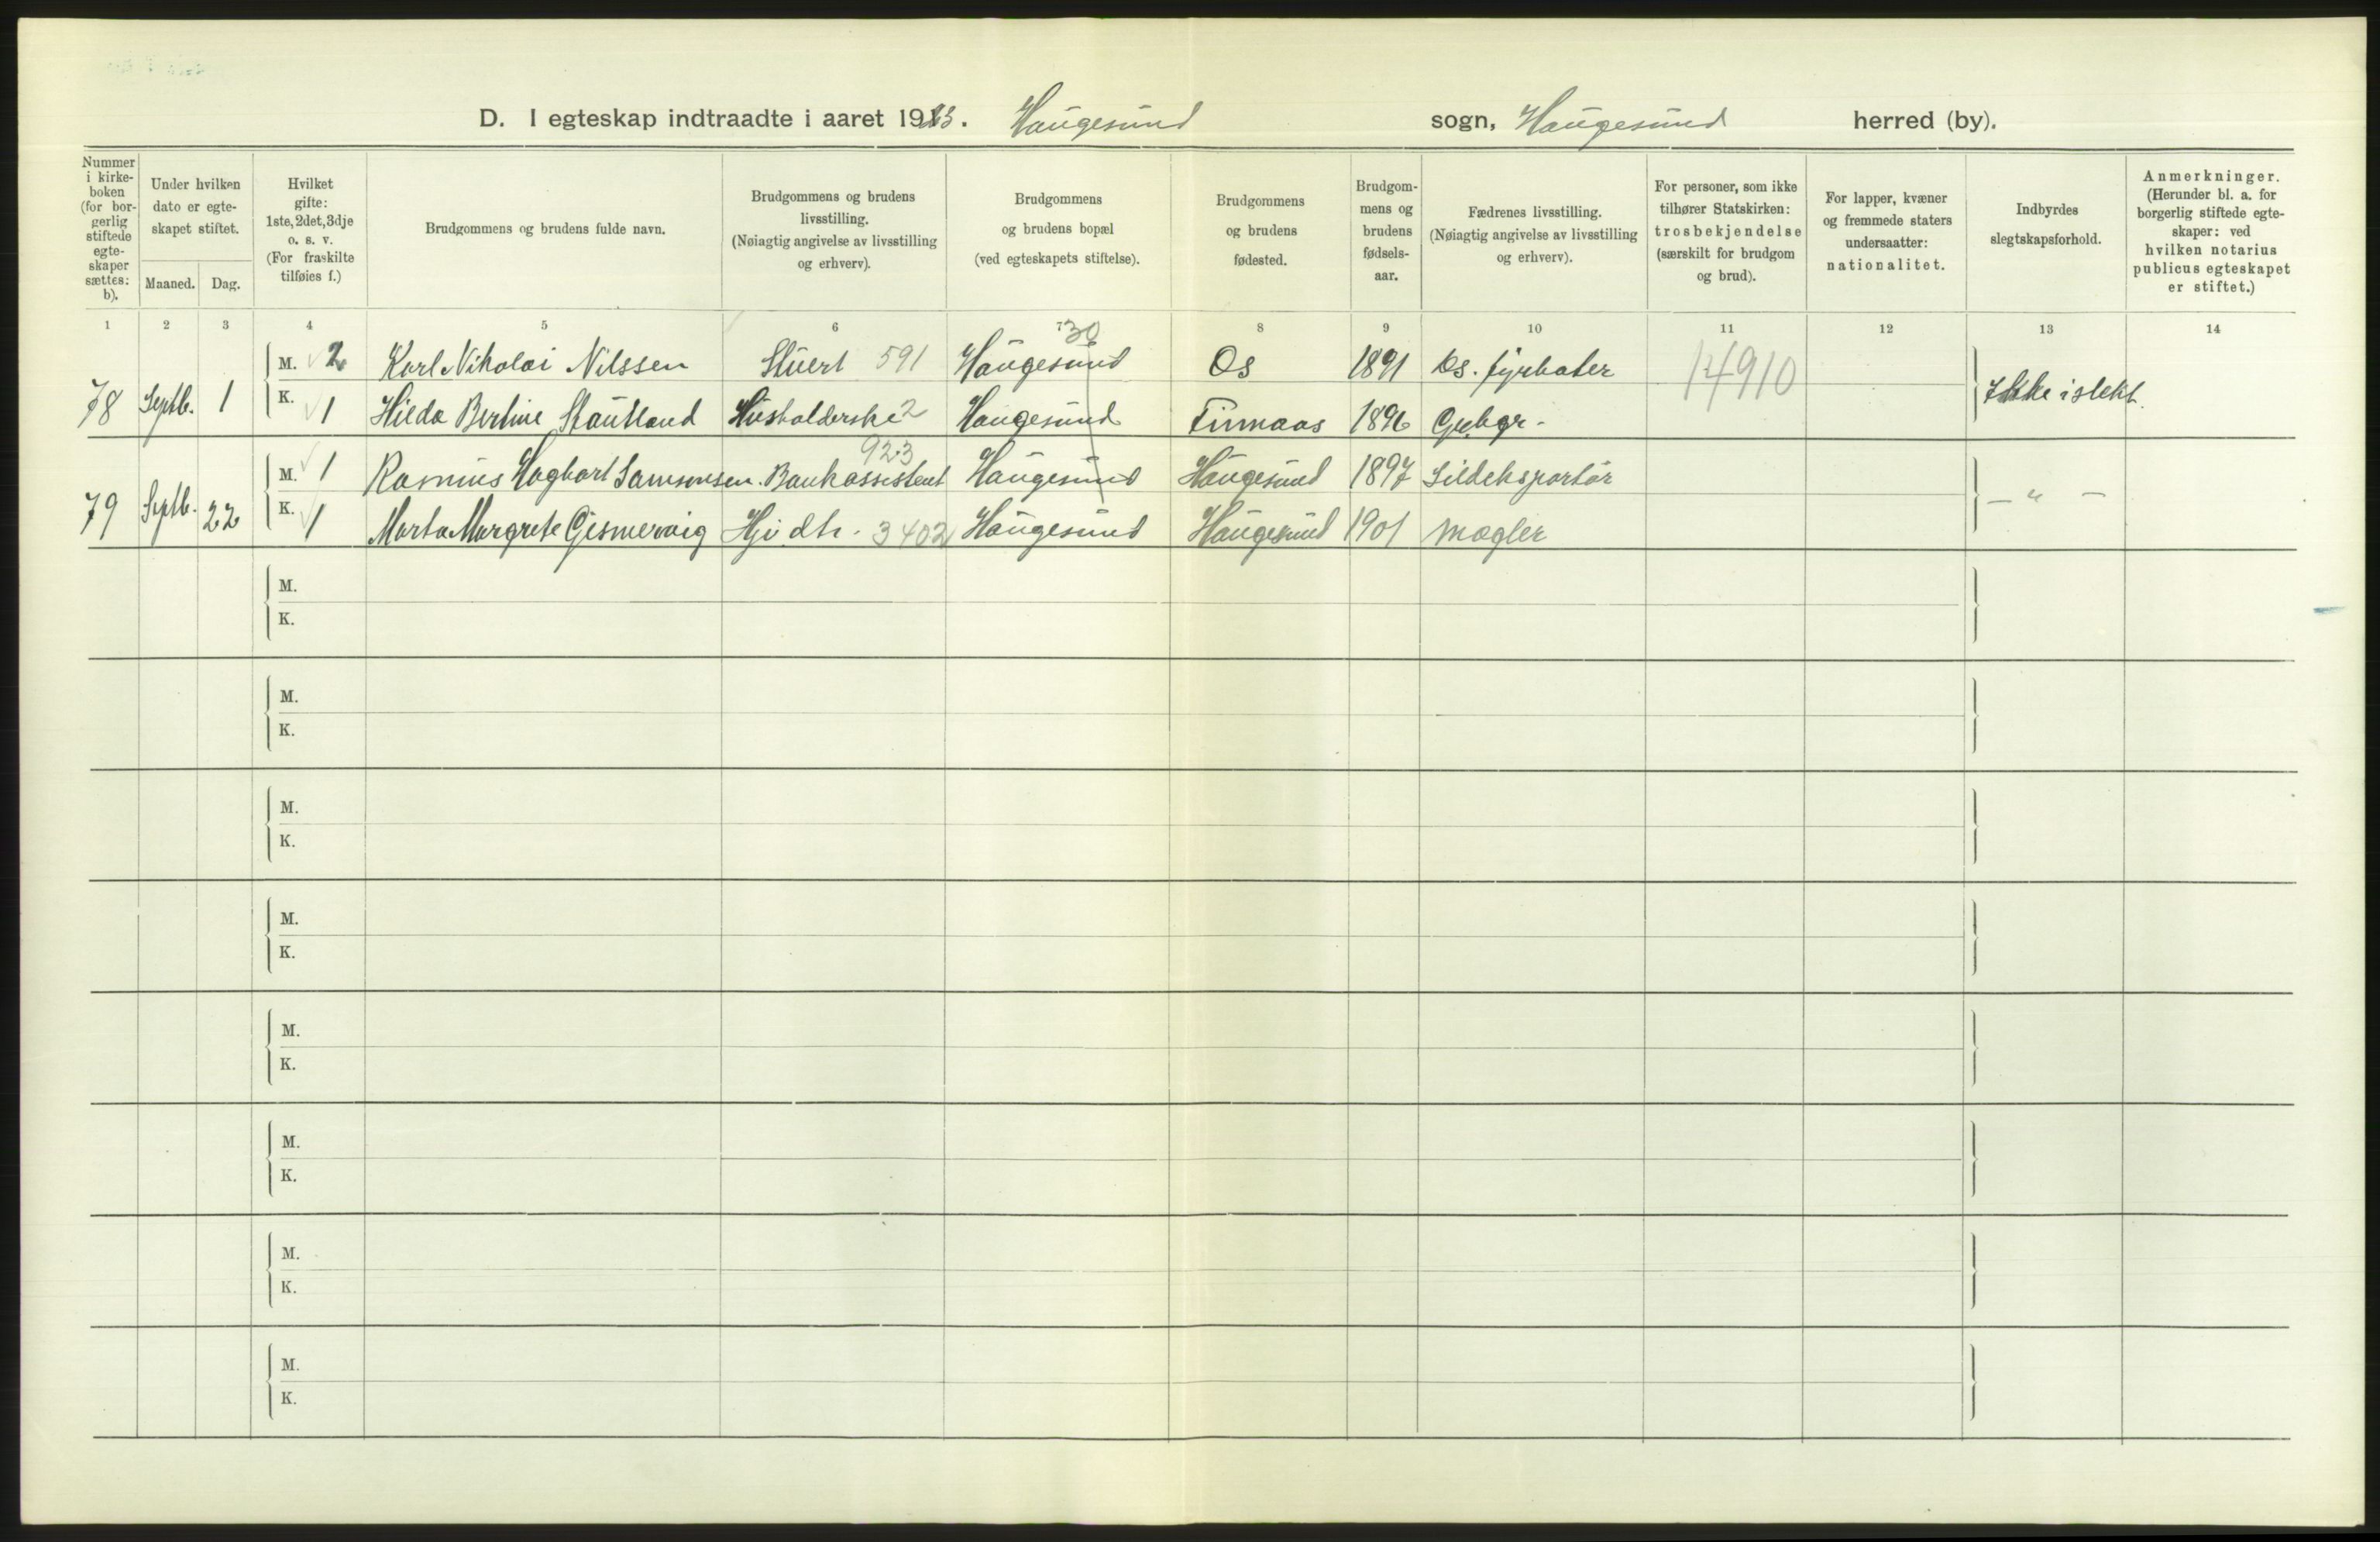 D. I egteskap indtraadte i aaret 1923. Haugesund sogn, Haugesund herred (by).
Nummer i kirke-boken (for bor-gerlig stiftede egte-skaper sættes: b).
Under hvilken dato er egte-skapet stiftet.
Maaned. Dag.
Hvilket gifte: 1ste, 2det, 3dje o. s. v. (For fraskilte tilføies f.)
Brudgommens og brudens fulde navn.
Brudgommens og brudens livsstilling. (Nøiagtig angivelse av livsstilling og erhverv).
Brudgommens og brudens bopæl (ved egteskapets stiftelse).
Brudgommens og brudens fødested.
Brudgom-mens og brudens fødsels-aar.
Fædrenes livsstilling. (Nøiagtig angivelse av livsstilling og erhverv).
For personer, som ikke tilhører Statskirken: trosbekjendelse (særskilt for brudgom og brud).
For lapper, kvæner og fremmede staters undersaatter: nationalitet.
Indbyrdes slegtskapsforhold.
Anmerkninger. (Herunder bl. a. for borgerlig stiftede egte-skaper: ved hvilken notarius publicus egteskapet er stiftet.)
1 2 3 4 5 6 7 8 9 10 11 12 13 14
30
78 Septb. 1 M. 2 Karl Nikolai Nilssen Stuert 591 Haugesund Os 1891 Os. fyrbøter 14910 Ikke i slekt.
K. 1 Hilda Bertine Stautland Husholderske 2 Haugesund Finnaas 1896 Gbgr.
923
79 Septb. 22 M. 1 Rasmus Hagbart Samsonsen. Bankassistent Haugesund Haugesund 1897 Sildeksportør — " —
K. 1 Marta Margrete Gjesmervig Hj. dtr. 3402 Haugesund Haugesund 1901 Mægler
M.
K.
M.
K.
M.
K.
M.
K.
M.
K.
M.
K.
M.
K.
M.
K.